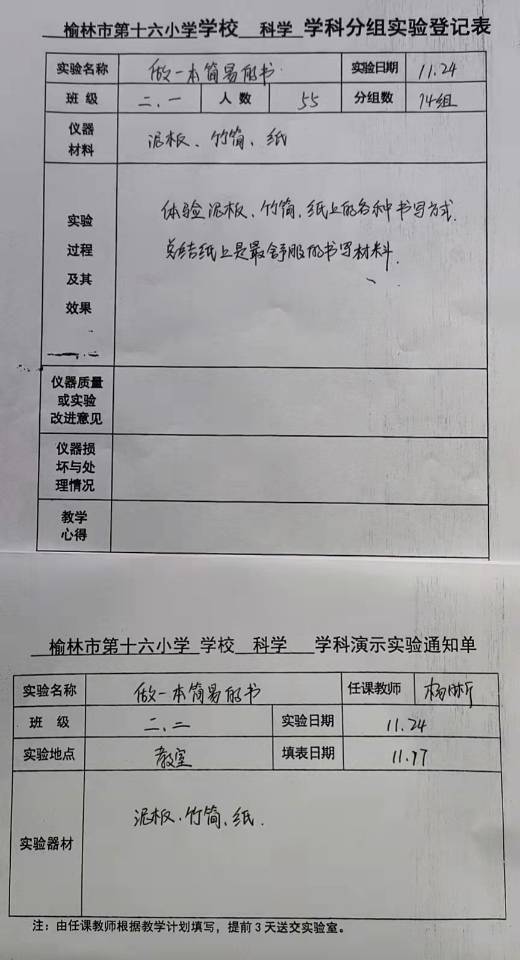 榆林市第十六小学学校 科学 学科分组实验登记表
实验名称 做一本简易的书 实验日期 11.24
班 级 二、一 人 数 55 分组数 14组
仪器
材料
泥板、竹简、纸
体验泥板、竹简、纸上的各种书写方式.
总结纸上是最舒服的书写材料.
实验
过程
及其
效果
仪器质量
或实验
改进意见
仪器损
坏与处
理情况
教学
心得
榆林市第十六小学 学校 科学 学科演示实验通知单
实验名称 做一本简易的书 任课教师 杨
班 级 二、二 实验日期 11.24
实验地点 教室 填表日期 11.17
泥板、竹简、纸.
实验器材
注：由任课教师根据教学计划填写，提前 3 天送交实验室。